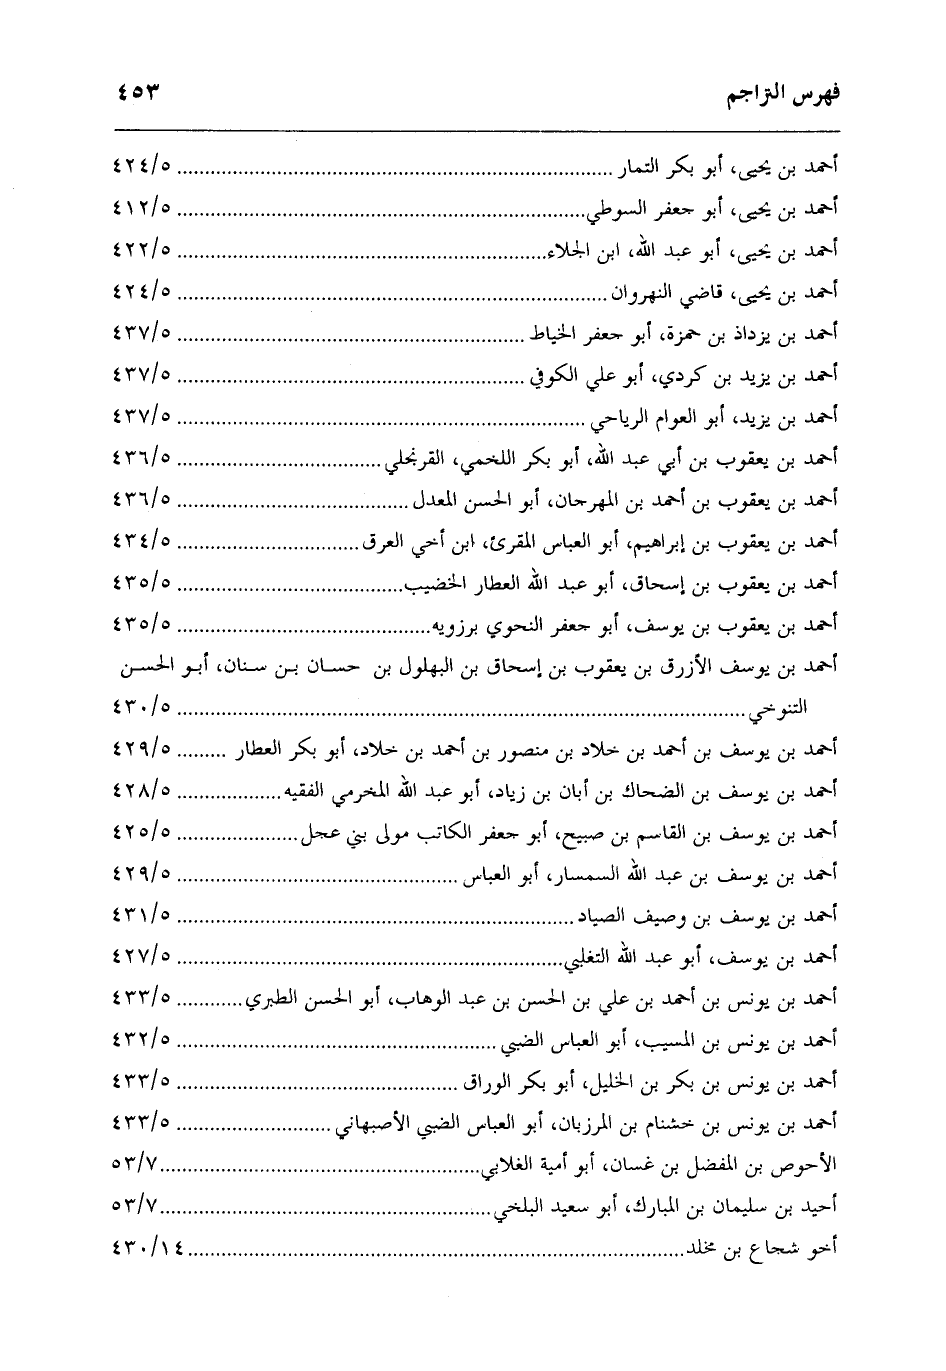 فهرس التراجم ٤٥٣
أحمد بن يحيى، أبو بكر التمار ............ ٤٢٤/٥
أحمد بن يحيى، أبو جعفر السوطي ............ ٤١٢/٥
أحمد بن يحيى، أبو عبد الله، ابن الجلاء ............ ٤٢٢/٥
أحمد بن يحيى، قاضي النهروان ............ ٤٢٤/٥
أحمد بن يزداذ بن حمزة، أبو جعفر الخياط ............ ٤٣٧/٥
أحمد بن يزيد بن كردي، أبو علي الكوفي ............ ٤٣٧/٥
أحمد بن يزيد، أبو العوام الرياحي ............ ٤٣٧/٥
أحمد بن يعقوب بن أبي عبد الله، أبو بكر اللخمي، القرنجلي ............ ٤٣٦/٥
أحمد بن يعقوب بن أحمد بن المهرجان، أبو الحسن المعدل ............ ٤٣٦/٥
أحمد بن يعقوب بن إبراهيم، أبو العباس المقرئ، ابن أخي العرق ............ ٤٣٤/٥
أحمد بن يعقوب بن إسحاق، أبو عبد الله العطار الخضيب ............ ٤٣٥/٥
أحمد بن يعقوب بن يوسف، أبو جعفر النحوي برزويه ............ ٤٣٥/٥
أحمد بن يوسف الأزرق بن يعقوب بن إسحاق بن البهلول بن حسان بن سنان، أبو الحسن
التنوخي ............ ٤٣٠/٥
أحمد بن يوسف بن أحمد بن خلاد بن منصور بن أحمد بن خلاد، أبو بكر العطار ......... ٤٢٩/٥
أحمد بن يوسف بن الضحاك بن أبان بن زياد، أبو عبد الله المخرمي الفقيه ............ ٤٢٨/٥
أحمد بن يوسف بن القاسم بن صبيح، أبو جعفر الكاتب مولى بني عجل ............ ٤٢٥/٥
أحمد بن يوسف بن عبد الله السمسار، أبو العباس ............ ٤٢٩/٥
أحمد بن يوسف بن وصيف الصياد ............ ٤٣١/٥
أحمد بن يوسف، أبو عبد الله التغلبي ............ ٤٢٧/٥
أحمد بن يونس بن أحمد بن علي بن الحسن بن عبد الوهاب، أبو الحسن الطبري ............ ٤٣٣/٥
أحمد بن يونس بن المسيب، أبو العباس الضبي ............ ٤٣٢/٥
أحمد بن يونس بن بكر بن الخليل، أبو بكر الوراق ............ ٤٣٣/٥
أحمد بن يونس بن خشنام بن المرزبان، أبو العباس الضبي الأصبهاني ............ ٤٣٣/٥
الأحوص بن المفضل بن غسان، أبو أمية الغلابي ............ ٥٣/٧
أحيد بن سليمان بن المبارك، أبو سعيد البلخي ............ ٥٣/٧
أخو شجاع بن مخلد ............ ٤٣٠/١٤